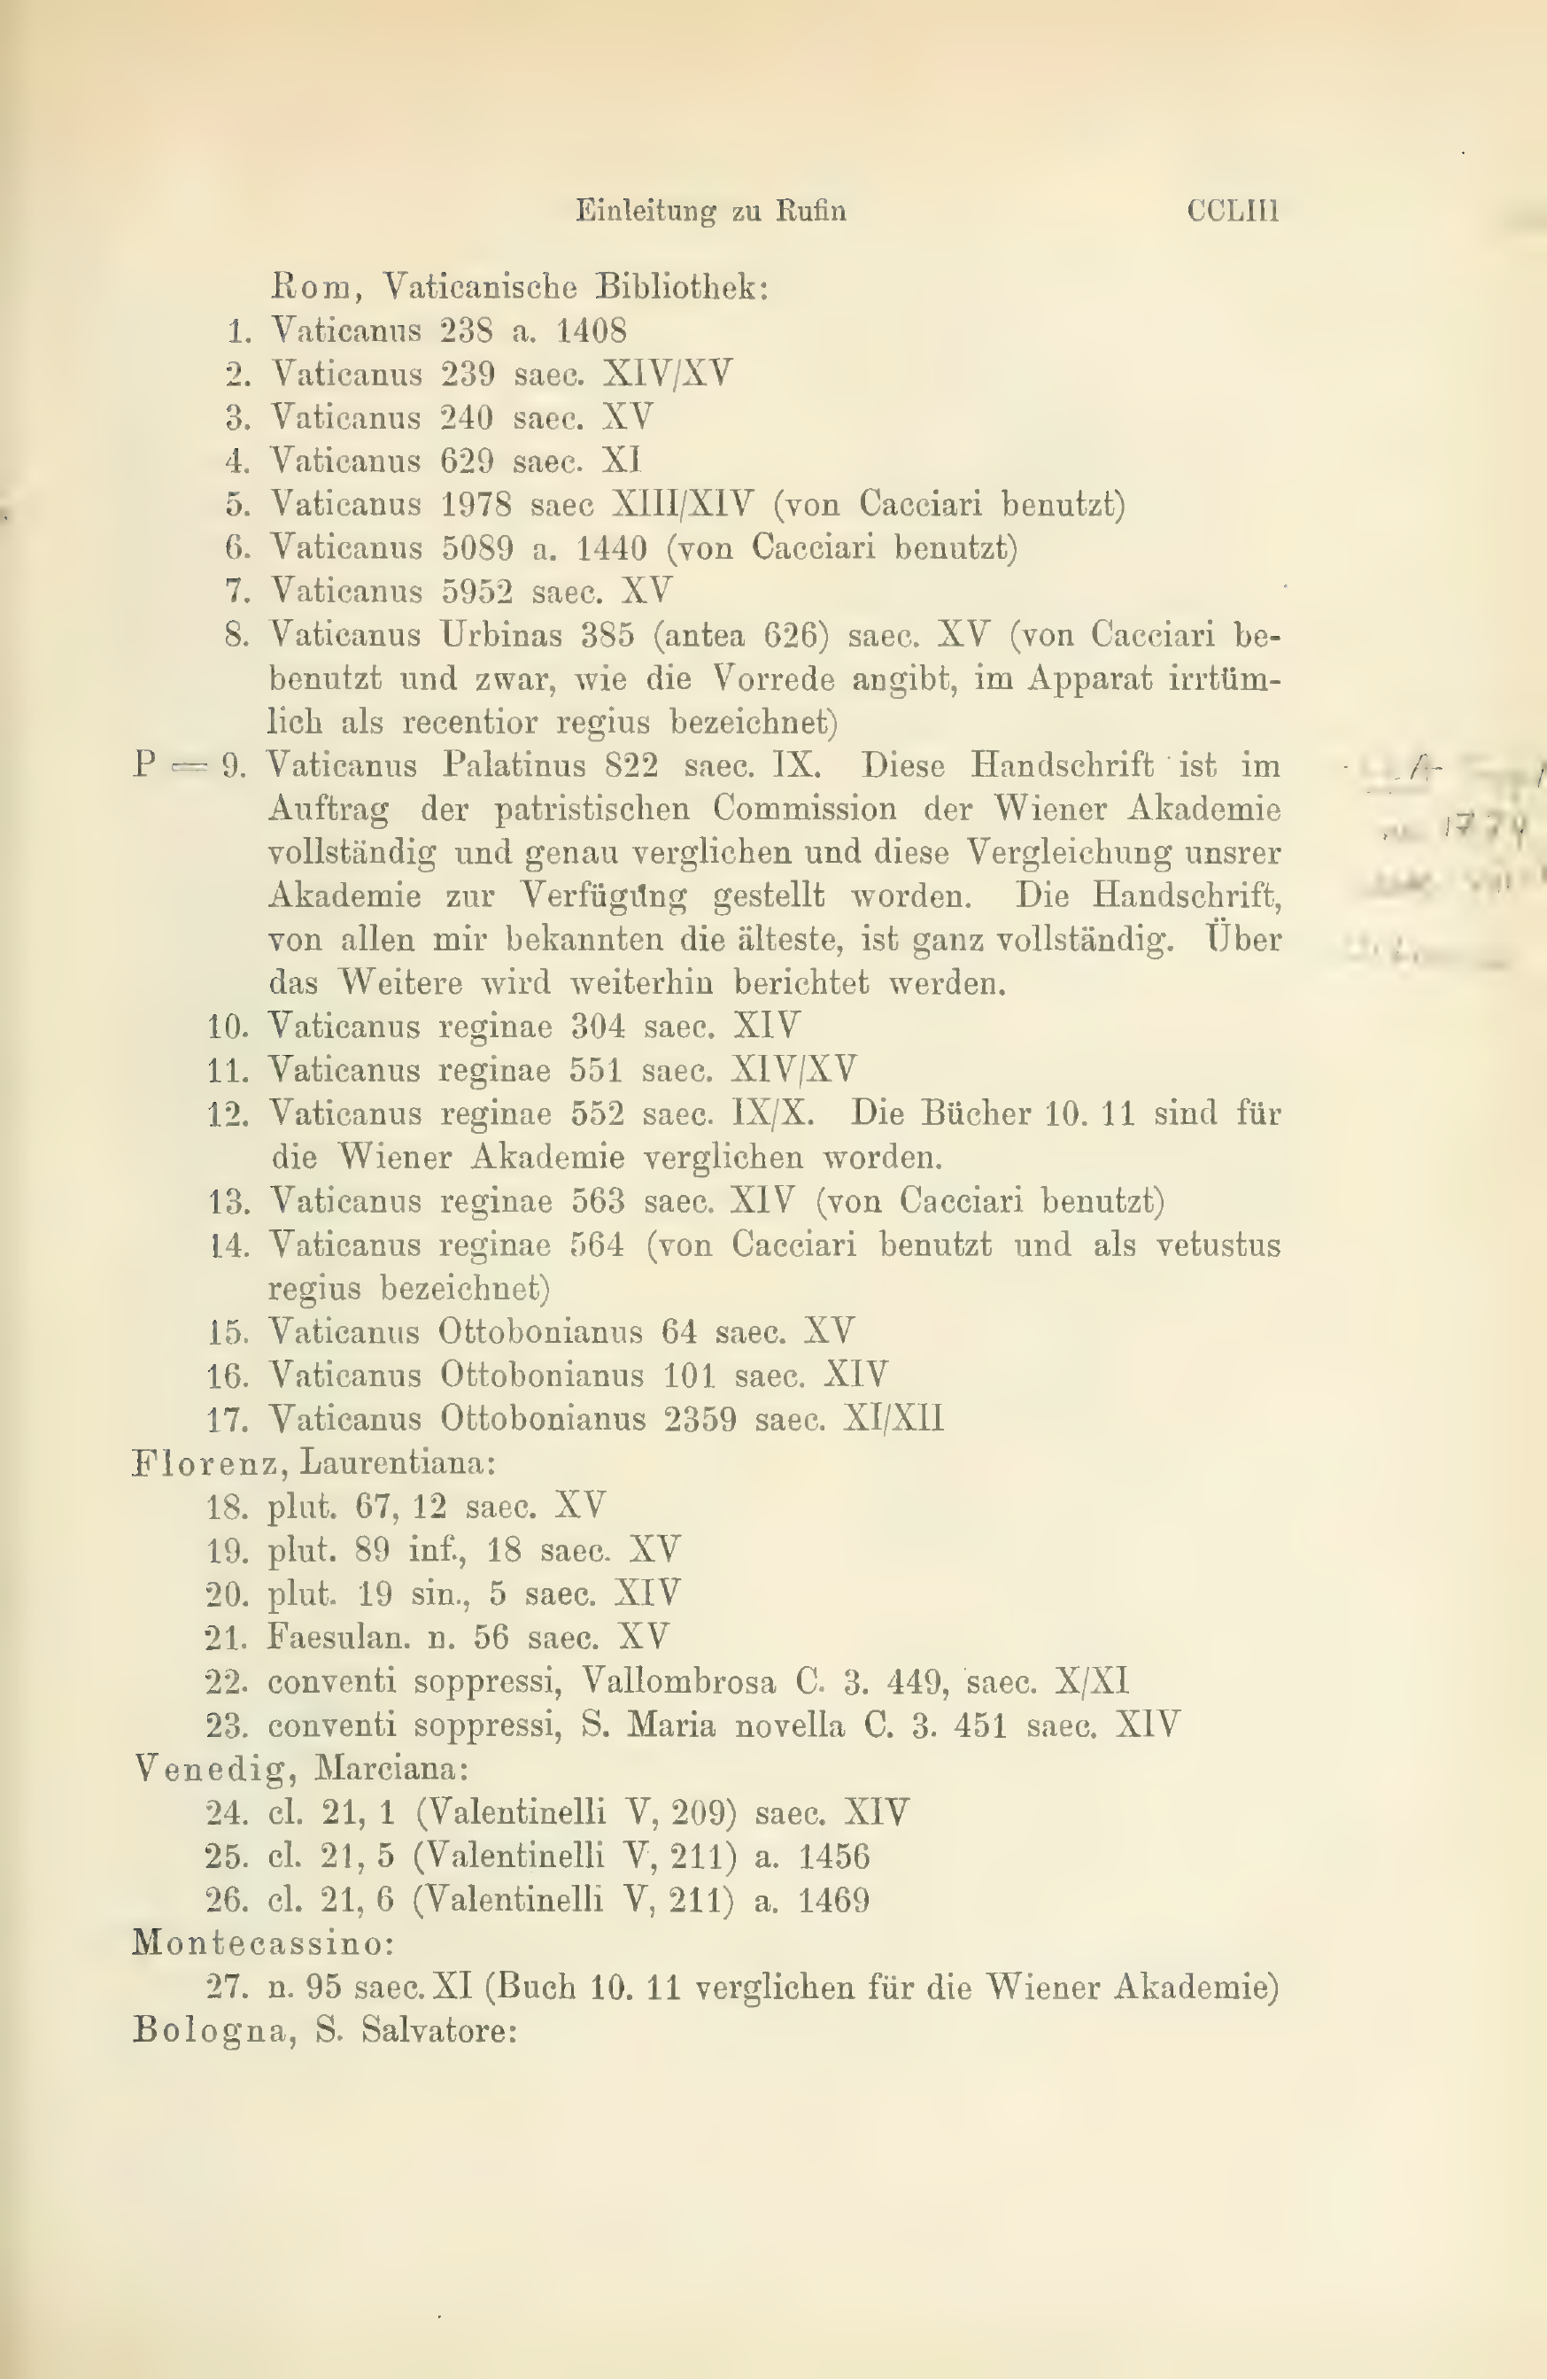 Einleitung zu Rufin CCLIII
Rom, Vaticanische Bibliothek:
1. Vaticanus 238 a. 1408
2. Vaticanus 239 saec. XIV/XV
3. Vaticanus 240 saec. XV
4. Vaticanus 629 saec. XI
5. Vaticanus 1978 saec XIII/XIV (von Cacciari benutzt)
6. Vaticanus 5089 a. 1440 (von Cacciari benutzt)
7. Vaticanus 5952 saec. XV
8. Vaticanus Urbinas 385 (antea 626) saec. XV (von Cacciari be-
benutzt und zwar, wie die Vorrede angibt, im Apparat irrtüm-
lich als recentior regius bezeichnet)
P = 9. Vaticanus Palatinus 822 saec. IX. Diese Handschrift ist im
Auftrag der patristischen Commission der Wiener Akademie
vollständig und genau verglichen und diese Vergleichung unsrer
Akademie zur Verfügung gestellt worden. Die Handschrift,
von allen mir bekannten die älteste, ist ganz vollständig. Über
das Weitere wird weiterhin berichtet werden.
10. Vaticanus reginae 304 saec. XIV
11. Vaticanus reginae 551 saec. XIV/XV
12. Vaticanus reginae 552 saec. IX/X. Die Bücher 10. 11 sind für
die Wiener Akademie verglichen worden.
13. Vaticanus reginae 563 saec. XIV (von Cacciari benutzt)
14. Vaticanus reginae 564 (von Cacciari benutzt und als vetustus
regius bezeichnet)
15. Vaticanus Ottobonianus 64 saec. XV
16. Vaticanus Ottobonianus 101 saec. XIV
17. Vaticanus Ottobonianus 2359 saec. XI/XII
Florenz, Laurentiana:
18. plut. 67, 12 saec. XV
19. plut. 89 inf., 18 saec. XV
20. plut. 19 sin., 5 saec. XIV
21. Faesulan. n. 56 saec. XV
22. conventi soppressi, Vallombrosa C. 3. 449, saec. X/XI
23. conventi soppressi, S. Maria novella C. 3. 451 saec. XIV
Venedig, Marciana:
24. cl. 21, 1 (Valentinelli V, 209) saec. XIV
25. cl. 21, 5 (Valentinelli V, 211) a. 1456
26. cl. 21, 6 (Valentinelli V, 211) a. 1469
Montecassino:
27. n. 95 saec. XI (Buch 10. 11 verglichen für die Wiener Akademie)
Bologna, S. Salvatore: